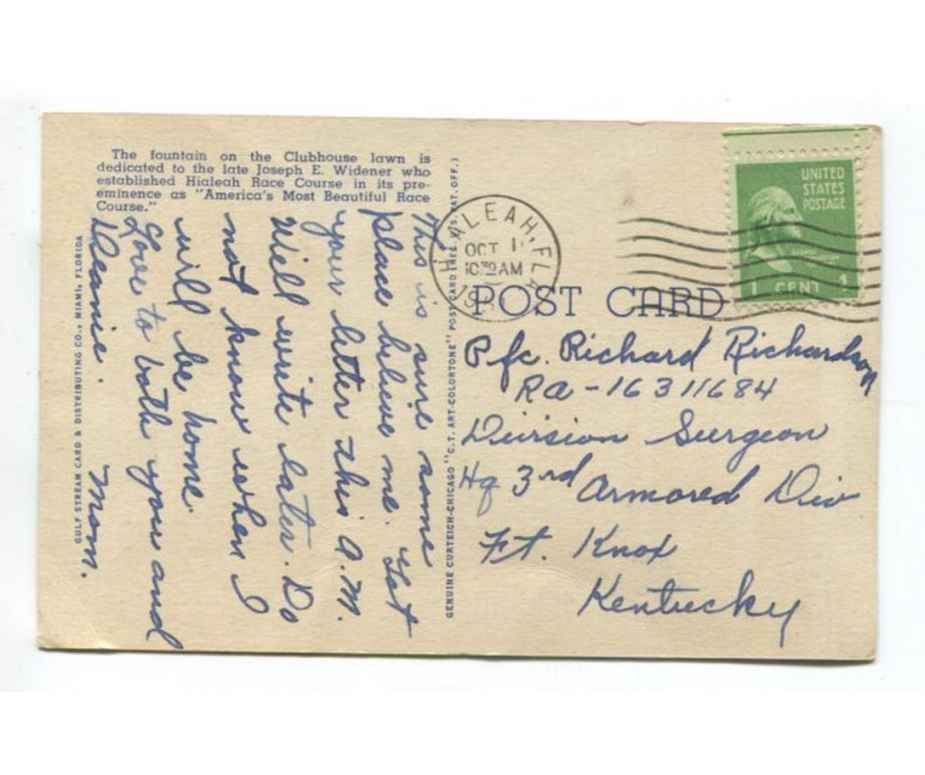 The fountain on the Clubhouse lawn is
dedicated to the late Joseph E. Widener who
established Hialeah Race Course in its pre-
eminence as "America's Most Beautiful Race
Course."
This is sure some
place belive me. Got
your letter this A.M.
Will write later. Do
not know when I
will be home.
Love to both you and
Deanie. Mom.
GULF STREAM CARD & DISTRIBUTING CO., MIAMI, FLORIDA
GENUINE CURTEICH-CHICAGO "C.T. ART-COLORTONE" POST CARD (REG. U.S. PAT. OFF.)
HIALEAH, FLA.
OCT 1
10 30 AM
UNITED
STATES
POSTAGE
1 CENT 1
POST CARD
Pfc. Richard Richardson
RA-16311684
Division Surgeon
Hq 3rd Armored Div
Ft. Knox
Kentucky